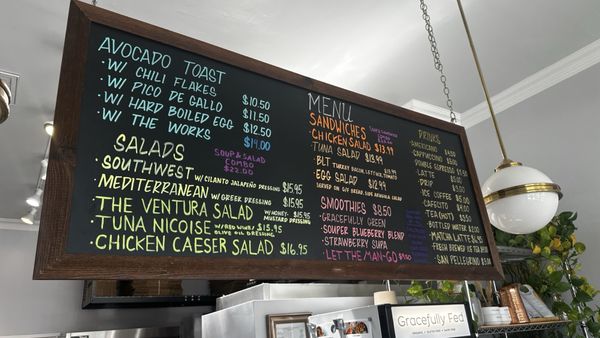 AVOCADO TOAST
• W/ CHILI FLAKES $10.50
• W/ PICO DE GALLO $11.50
• W/ HARD BOILED EGG $12.50
• W/ THE WORKS $14.00
SALADS
SOUP & SALAD
COMBO
$22.00
• SOUTHWEST W/ CILANTO JALAPEÑO DRESSING $15.95
MEDITERRANEAN W/ GREEK DRESSING $15.95
• THE VENTURA SALAD W/ HONEY MUSTARD DRESSING $15.95
• TUNA NICOISE W/ RED WINE/ OLIVE OIL DRESSING $15.95
• CHICKEN CAESER SALAD $16.95
MENU
SANDWICHES
COMBO
• CHICKEN SALAD $13.99
TUNA SALAD $13.99
BLT
EGG SALAD $12.99
SMOOTHIES $8.50
• GRACEFULLY GREEN
SOUPER BLUEBERRY BLEND
• STRAWBERRY SUPA
• LET THE/MAN-GO
DRINKS
AMERICANO
CAPPUCCINO
DOUBLE ESPRESSO
LATTE
DRIP
ICE COFFEE
CAFECITO
• TEA (HOT)
BOTTLED WATER
• MATCHA LATTE
• FRESH BREWED ICE TEA
• SAN PELLEGRINO
Gracefully Fed